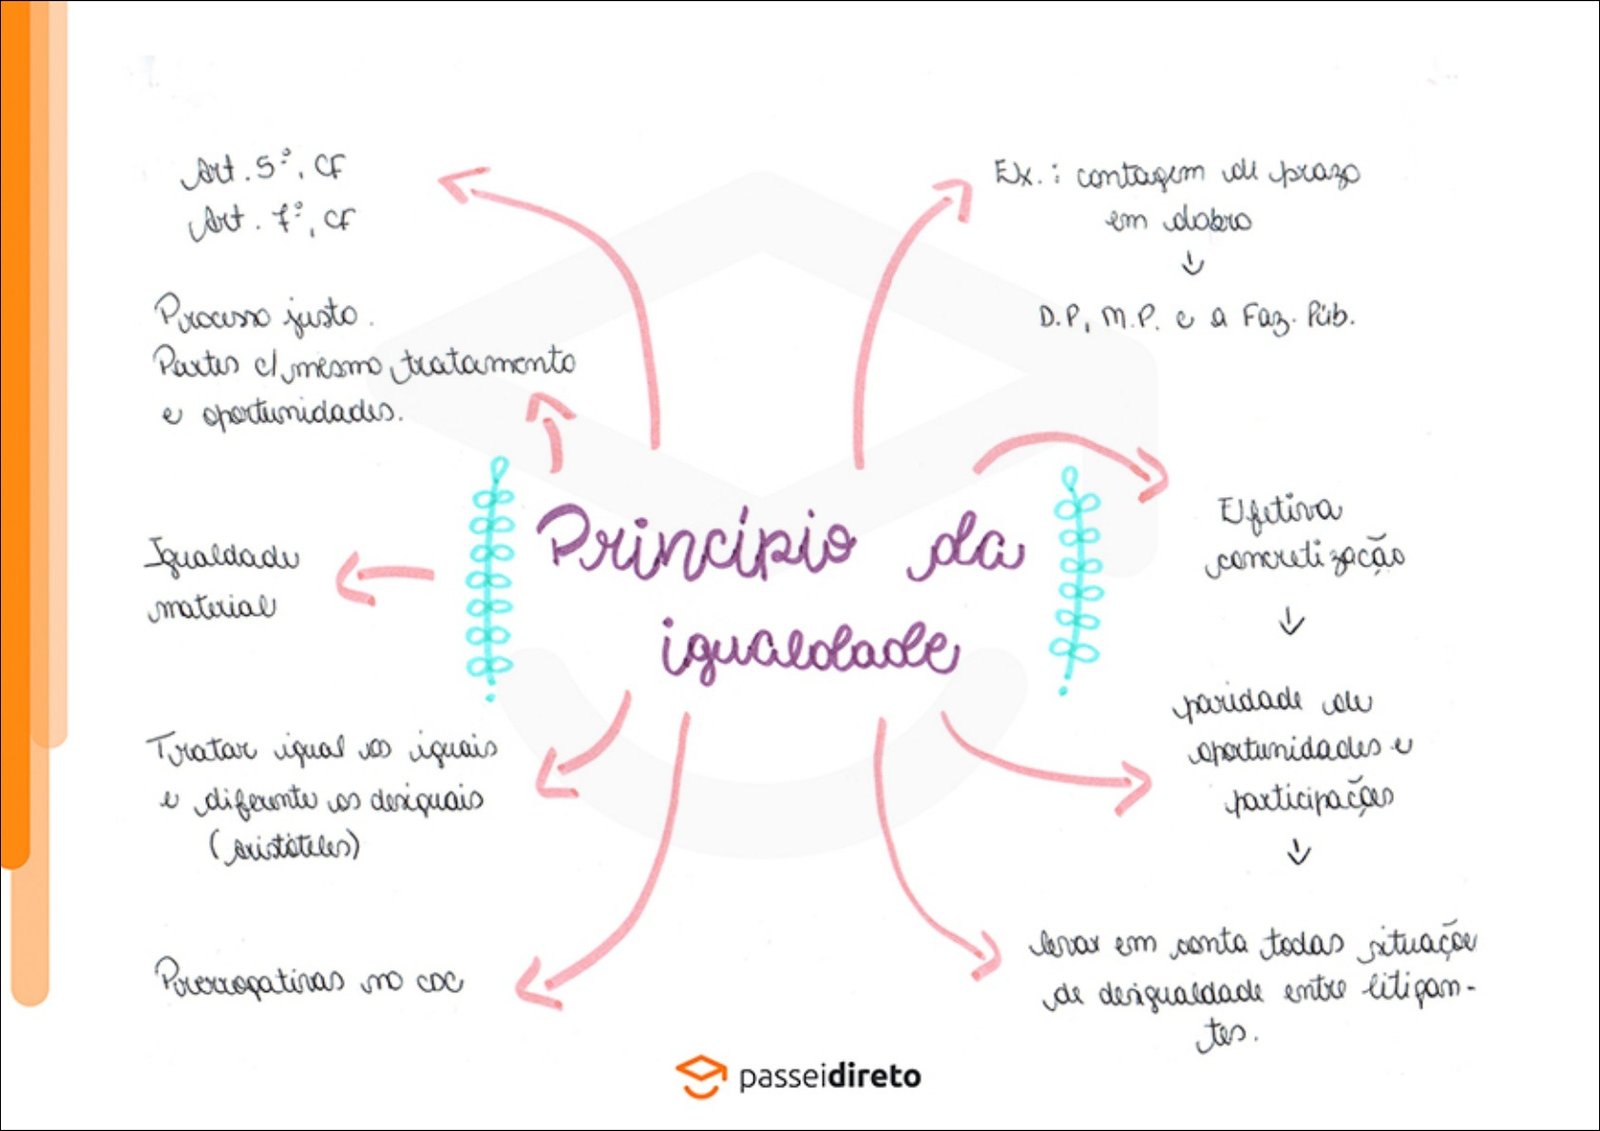 Art. 5º, CF
Art. 7º, CF
Processo justo.
Partes c/ mesmo tratamento
e oportunidades.
Igualdade
material
Tratar igual os iguais
e diferente os desiguais
(aristóteles)
Prerrogativas no CDC
Princípio da
igualdade
Ex.: contagem de prazo
em dobro
D.P, M.P. e a Faz. Púb.
Efetiva
concretização
paridade de
oportunidades e
participações
levar em conta todas situaçõe
de desigualdade entre litigan-
tes.
passeidireto